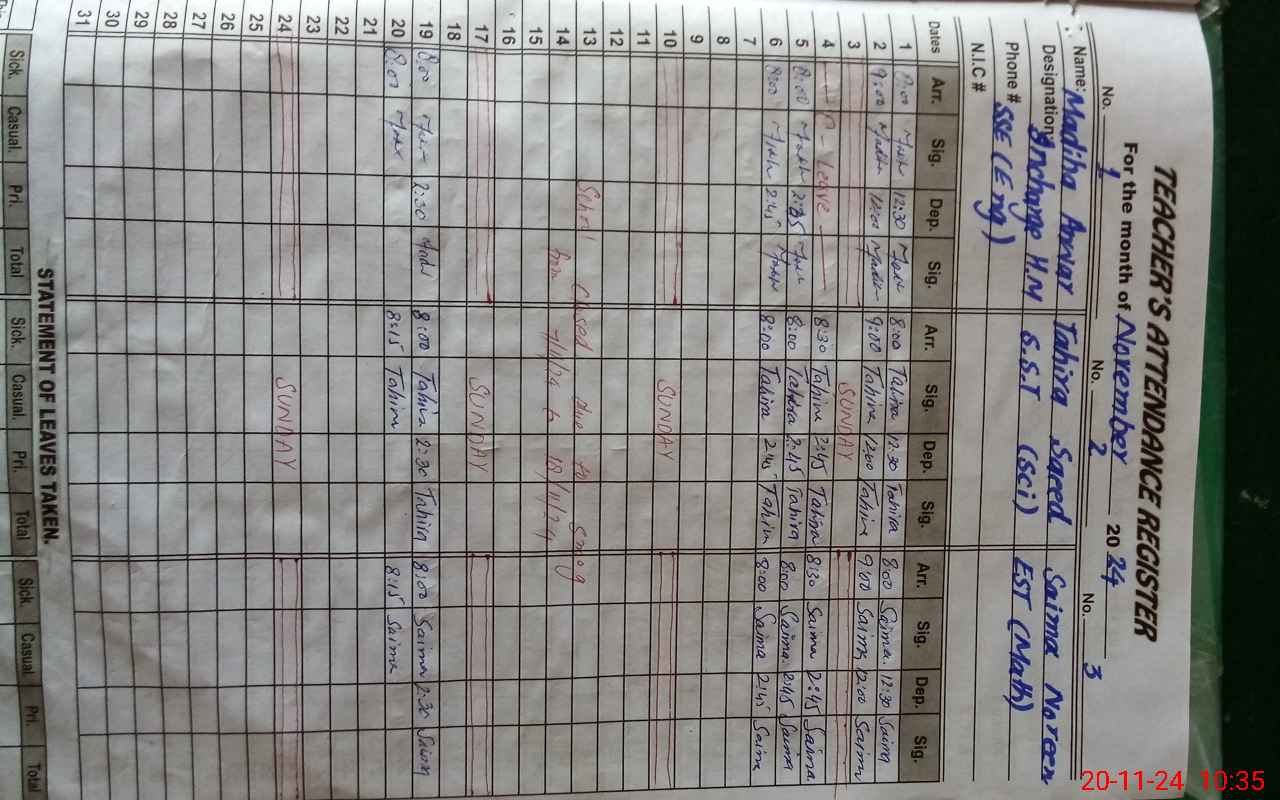 TEACHER'S ATTENDANCE REGISTER
For the month of November 2024
No. 1 No. 2 No. 3
Name: Madiha Anwar Tahira Saeed Saima Noreen
Designation Incharge H.M S.S.T (Sci) EST (Math)
Phone # SSE (Eng)
N.I.C #
Dates Arr. Sig. Dep. Sig. Arr. Sig. Dep. Sig. Arr. Sig. Dep. Sig.
1 8:00 12:30 8:00 Tahira 12:30 Tahira 8:00 Saima 12:30 Saima
2 9:00 12:00 9:00 Tahira 12:00 Tahira 9:00 Saima 12:00 Saima
3 SUNDAY
4 Leave 8:30 Tahira 2:45 Tahira 8:30 Saima 2:45 Saima
5 8:00 2:45 8:00 Tahira 2:45 Tahira 8:00 Saima 2:45 Saima
6 8:00 2:45 8:00 Tahira 2:45 Tahira 8:00 Saima 2:45 Saima
7
8
9
10 SUNDAY
11
12
13 School Closed due to Smog
14 7/11/24 to 18/11/24
15
16
17 SUNDAY
18
19 8:00 2:30 8:00 Tahira 2:30 Tahira 8:00 Saima 2:30 Saima
20 8:00 8:15 Tahira 8:15 Saima
21
22
23
24 SUNDAY
25
26
27
28
29
30
31
STATEMENT OF LEAVES TAKEN.
Sick. Casual. Pri. Total Sick. Casual. Pri. Total Sick Casual Pri. Total
20-11-24 10:35